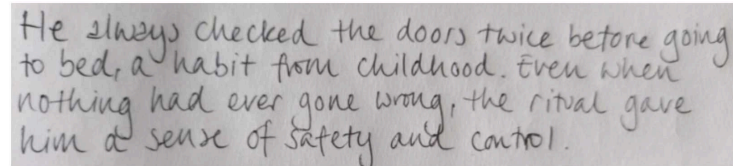 He always checked the doors twice before going
to bed, a habit from childhood. Even when
nothing had ever gone wrong, the ritual gave
him a sense of safety and control.